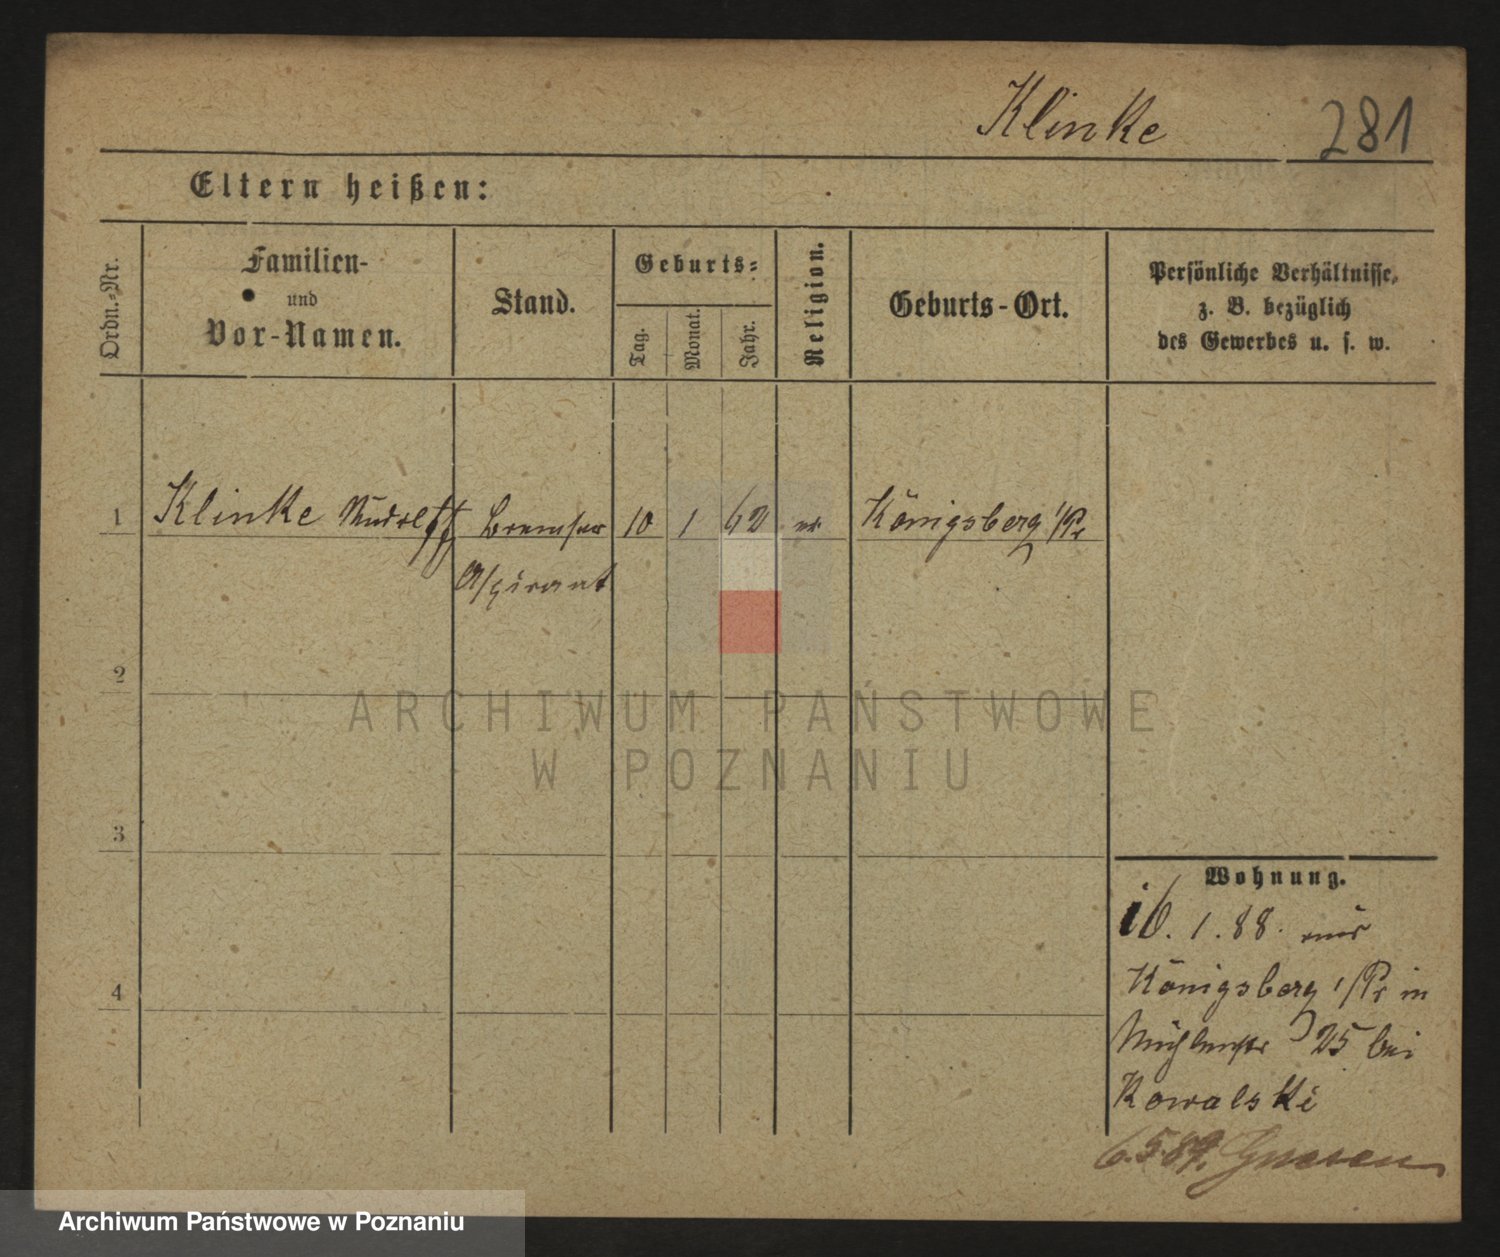 Klinke 281
Eltern heißen:
Ordn.-Nr.
Familien-
und
Vor-Namen.
Stand.
Geburts-
Tag.
Monat.
Jahr.
Religion.
Geburts-Ort.
Persönliche Verhältnisse,
z. B. bezüglich
des Gewerbes u. s. w.
1 Klinke Rudolff Bremser 10 1 62 ev Königsberg i/Pr
Aspirant
2
ARCHIWUM PAŃSTWOWE
W POZNANIU
3
Wohnung.
16. 1. 88. aus
4
Königsberg i/Pr in
Mühlenstr 25 bei
Kowalski
6.5.89. Gnesen
Archiwum Państwowe w Poznaniu